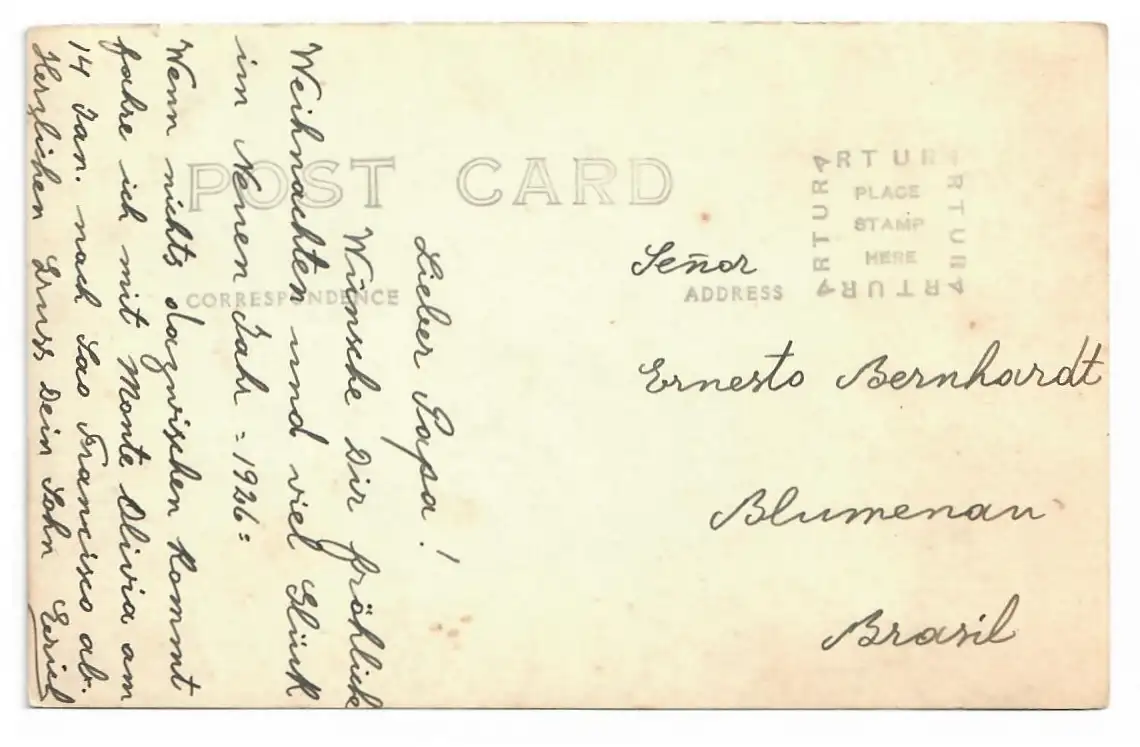 POST CARD
CORRESPONDENCE
ADDRESS
ARTURA
PLACE
STAMP
HERE
ARTURA
ARTURA
ARTURA
Lieber Papa!
Wünsche Dir fröhlich
Weihnachten und viel Glück
im Neuen Jahr = 1926 =
Wenn nichts dazwischen kommt
fahre ich mit Monte Olivia am
14 Jan. nach Sao Francisco ab.
Herzlichen Gruss Dein Sohn
Señor
Ernesto Bernhardt
Blumenau
Brasil